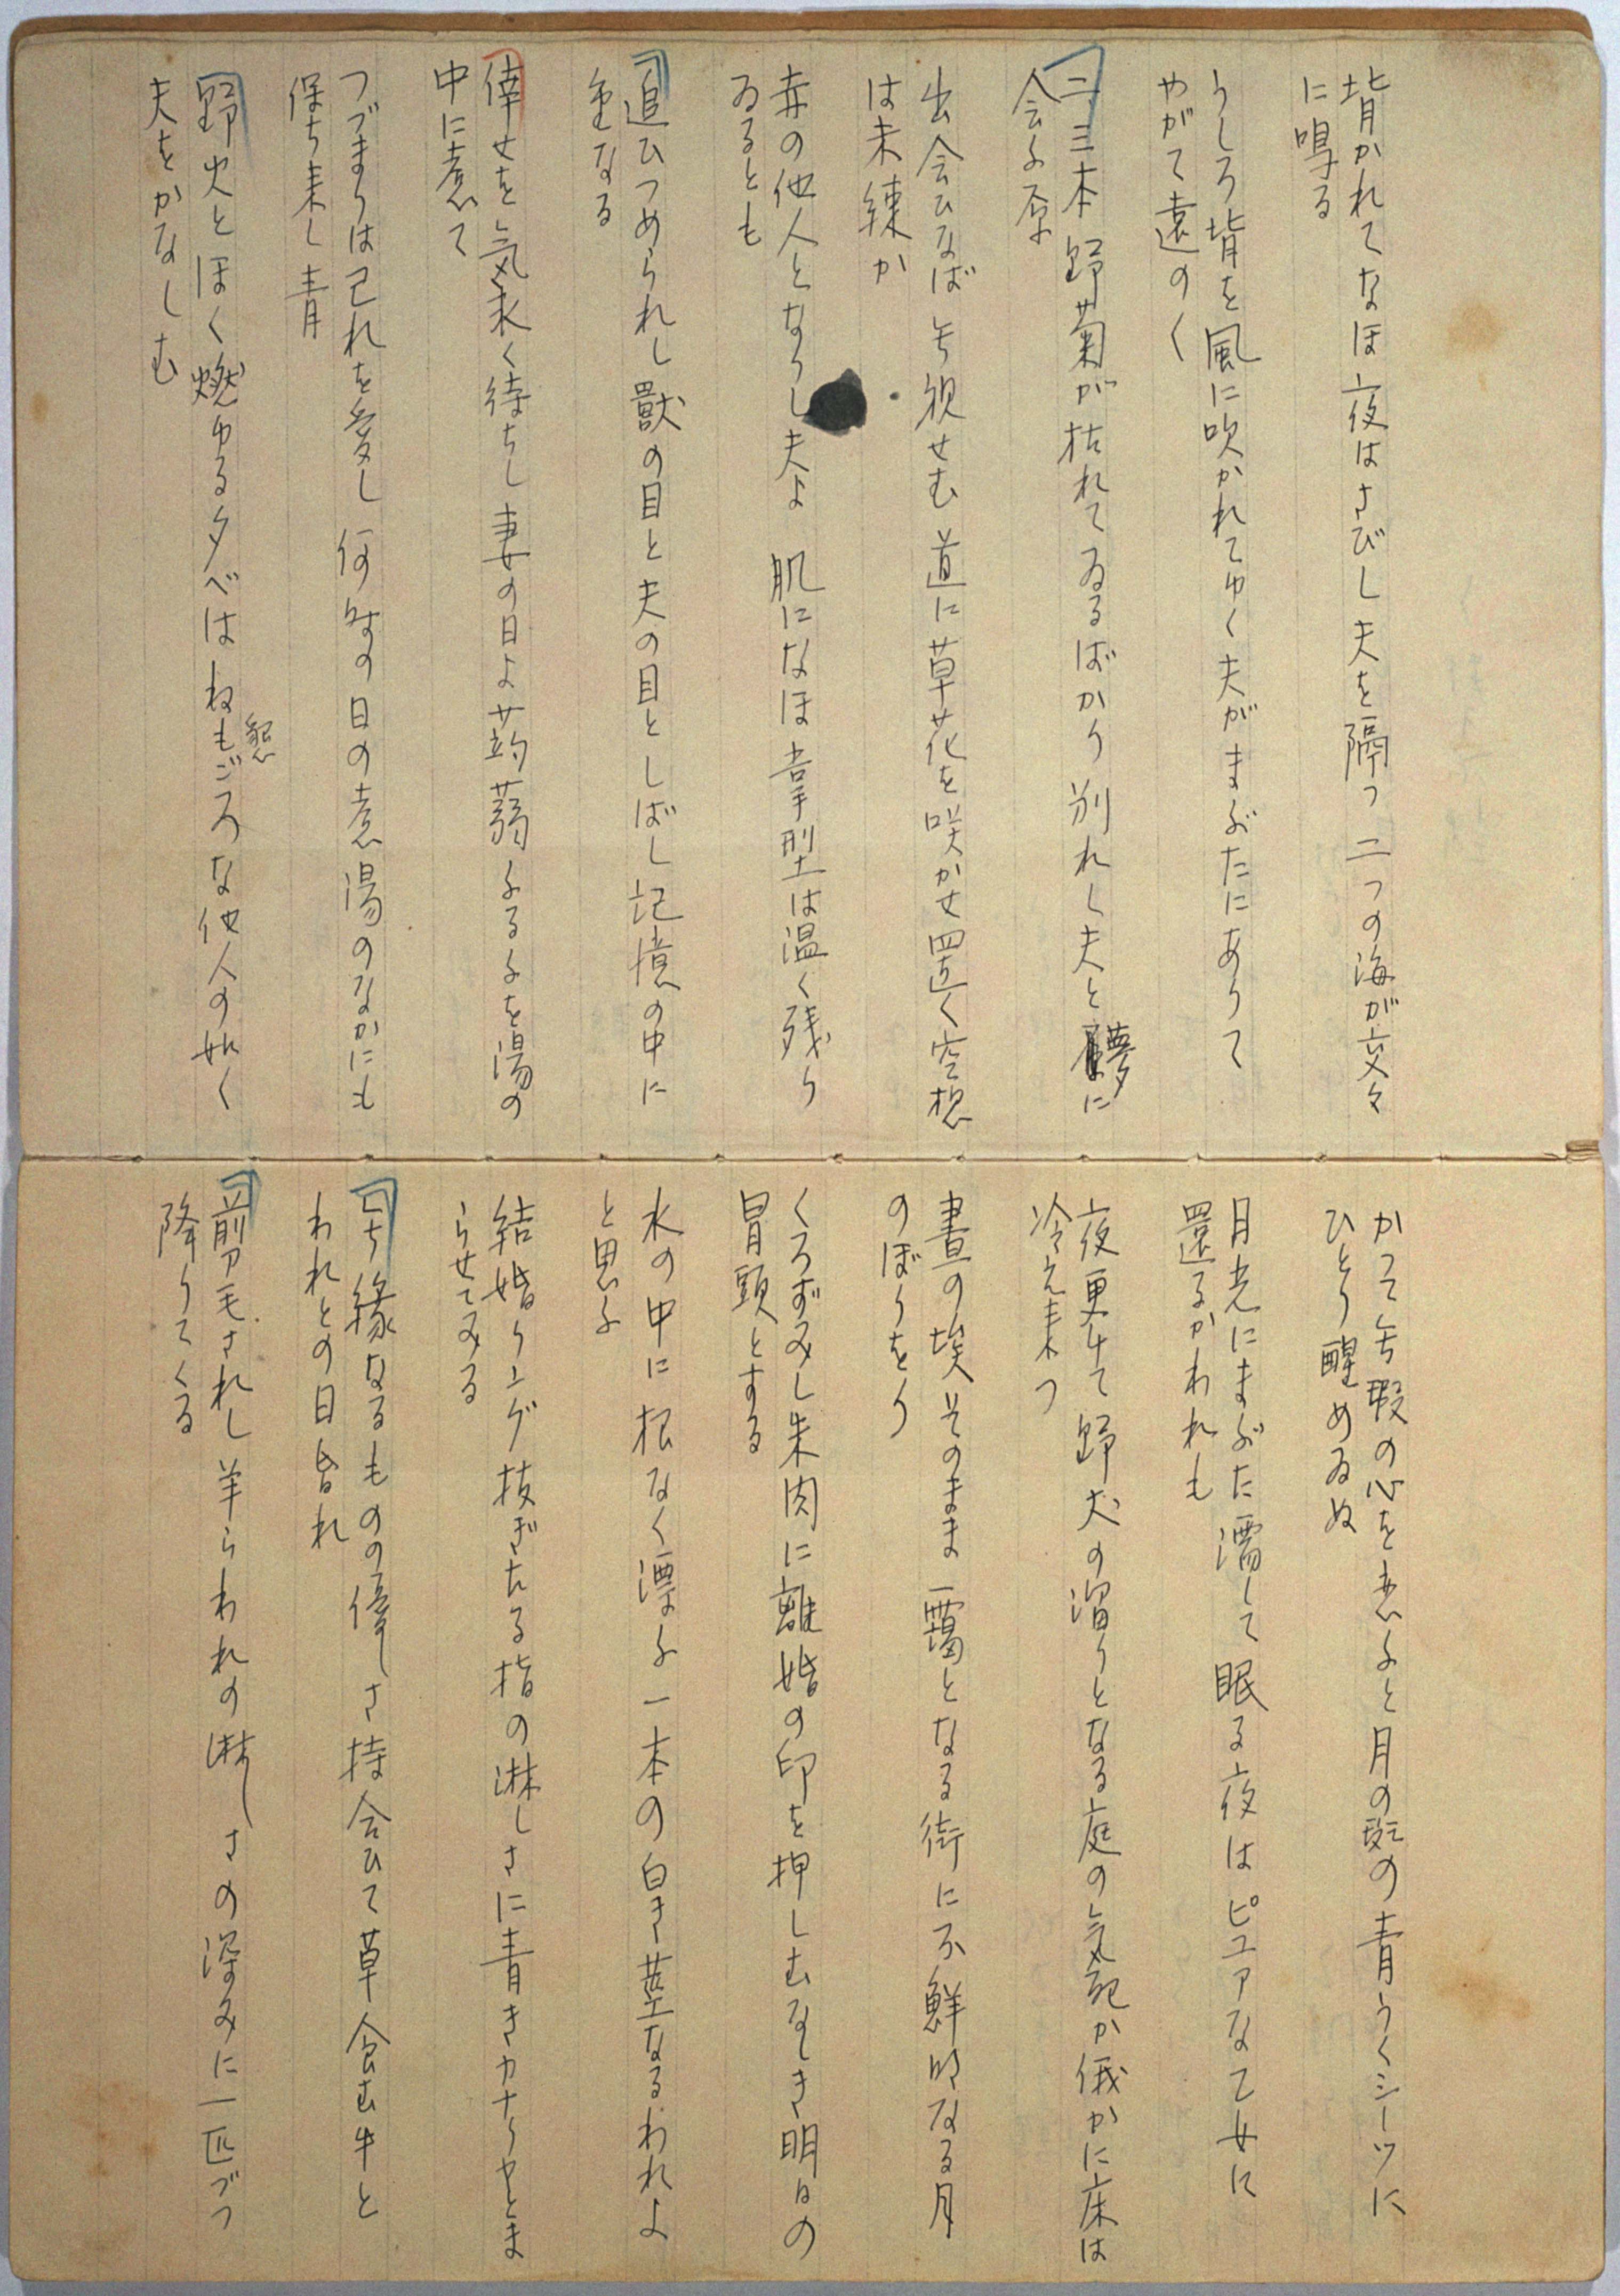 背かれてなほ夜はさびし夫を隔つ二つの海が交々
に鳴る
うしろ背を風に吹かれてゆく夫がまぶたにありて
やがて遠のく
二、三本野菊が枯れてゐるばかり別れし夫と夢に
会ふ原
出会ひなば無視せむ道に草花を咲かせ置く空想
は未練か
赤の他人となりし夫よ肌になほ掌型は温く残り
ゐるとも
追ひつめられし獣の目と夫の目としばし記憶の中に
重なる
倖せを気永く待ちし妻の日よ蒟蒻ふるふを湯の
中に煮て
つづまりは己れを愛し何時の日の煮湯のなかにも
保ち来し青
野火とほく燃ゆる夕べはねもごろな他人の如く
懇
夫をかなしむ
かつて無瑕の心を恋ふと月の翳の青うくシーツに
ひとり醒めゐぬ
月光にまぶた濡して眠る夜はピュアな乙女に
還るかわれも
夜更けて野犬の溜りとなる庭の気配か俄かに床は
冷え来つ
晝の埃そのまま靄となる街に不鮮明なる月
のぼりをり
くろずみし朱肉に離婚の印を押しむなしき明日の
冒頭とする
水の中に根なく漂ふ一本の白き茎なるわれよ
と思ふ
結婚リング抜ぎたる指の淋しさに青きカナリヤとま
らせてみる
無縁なるものの優しさ持合ひて草食む牛と
われとの日昏れ
剪毛されし羊らわれの淋しさの深みに一匹づつ
降りてくる